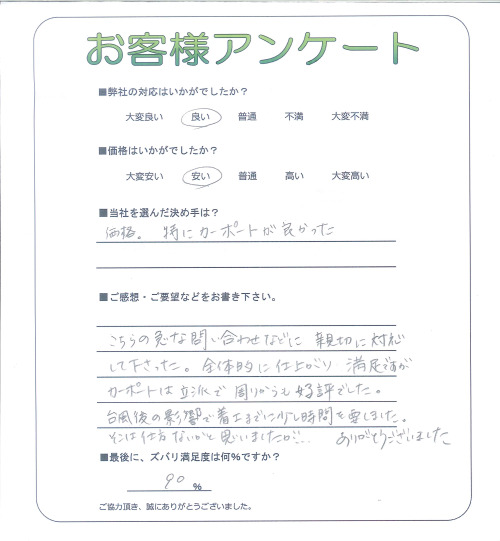 お客様アンケート
■弊社の対応はいかがでしたか？
大変良い 良い 普通 不満 大変不満
■価格はいかがでしたか？
大変安い 安い 普通 高い 大変高い
■当社を選んだ決め手は？
価格。 特にカーポートが良かった
■ご感想・ご要望などをお書き下さい。
こちらの急な問い合わせなどに 親切に対応
して下さった。全体的に仕上がり 満足ですが
カーポートは立派で 周りからも好評でした。
台風後の影響で着工までに少し時間を要しました。
そこは仕方ないかと思いましたが… ありがとうございました
■最後に、ズバリ満足度は何％ですか？
90 ％
ご協力頂き、誠にありがとうございました。